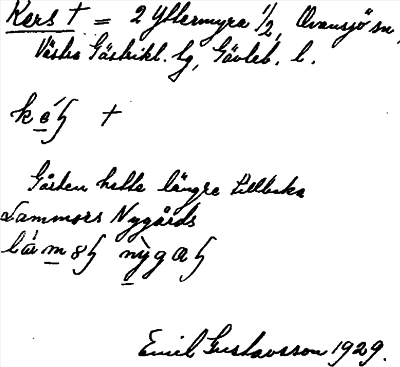 Kers † = 2 Yttermyra 1/2, Ovansjö sn,
Västra Gästrikl. tg, Gävleb. l.
†
Gården hette längre tillbaka
Lammers Nygårds
Emil Gustavsson 1929.